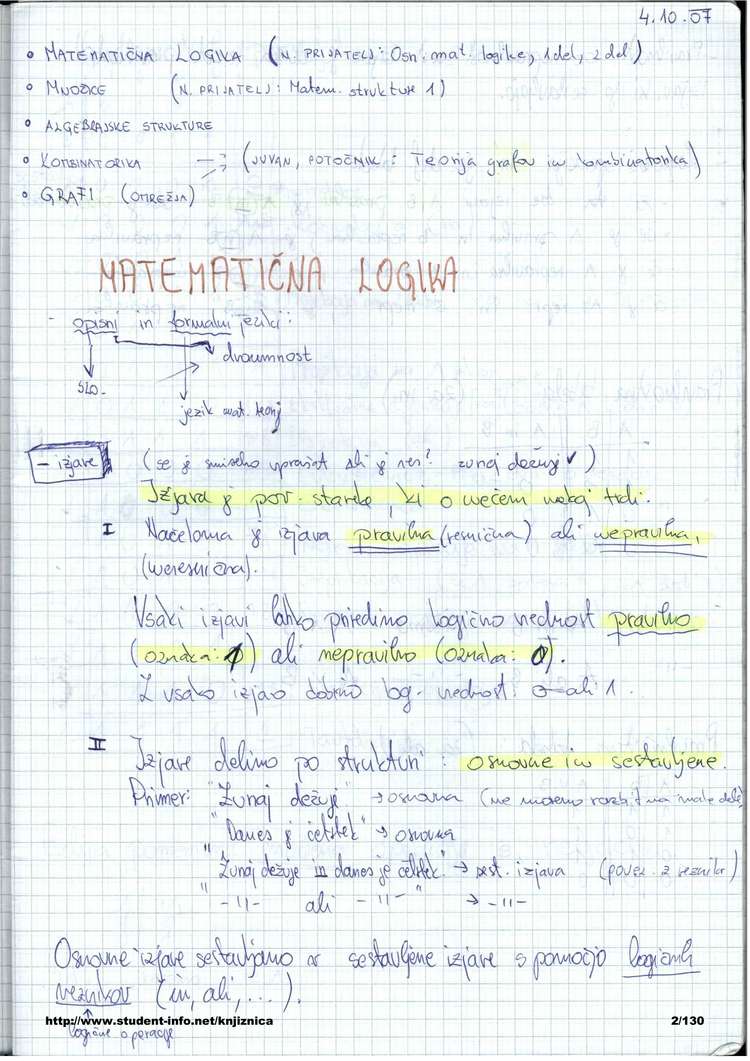 4.10.07
• MATEMATIČNA LOGIKA (N. PRIJATELJ: Osn. mat. logike, 1 del, 2 del)
• MNOŽICE (N. PRIJATELJ: Matem. strukture 1)
• ALGEBRAJSKE STRUKTURE
• KOMBINATORIKA → (JUVAN, POTOČNIK: Teorija grafov in kombinatorika)
• GRAFI (OMREŽJA)
MATEMATIČNA LOGIKA
- opisni in formalni jeziki:
dvoumnost
SLO.
jezik mat. teorij
- izjave (se je smiselno vprašat ali je res? zunaj dežuje ✓)
Izjava je pov. stavek, ki o nečem nekaj trdi.
I Načeloma je izjava pravilna (resnična) ali nepravilna,
(neresnična).
Vsaki izjavi lahko priredimo logično vrednost pravilno
(oznaka: 1) ali nepravilno (oznaka: 0).
Z vsako izjavo dobimo log. vrednost: 0 ali 1.
II Izjave delimo po strukturi: osnovne in sestavljene.
Primer: "Zunaj dežuje" → osnovna (ne moremo razbit na male dele)
"Danes je četrtek" → osnovna
"Zunaj dežuje in danes je četrtek." → sest. izjava (povez. z veznikr)
" -11- ali -11- " → -11-
Osnovne izjave sestavljamo v sestavljene izjave s pomočjo logičnih
veznikov (in, ali, ...).
logične operacije
http://www.student-info.net/knjiznica 2/130